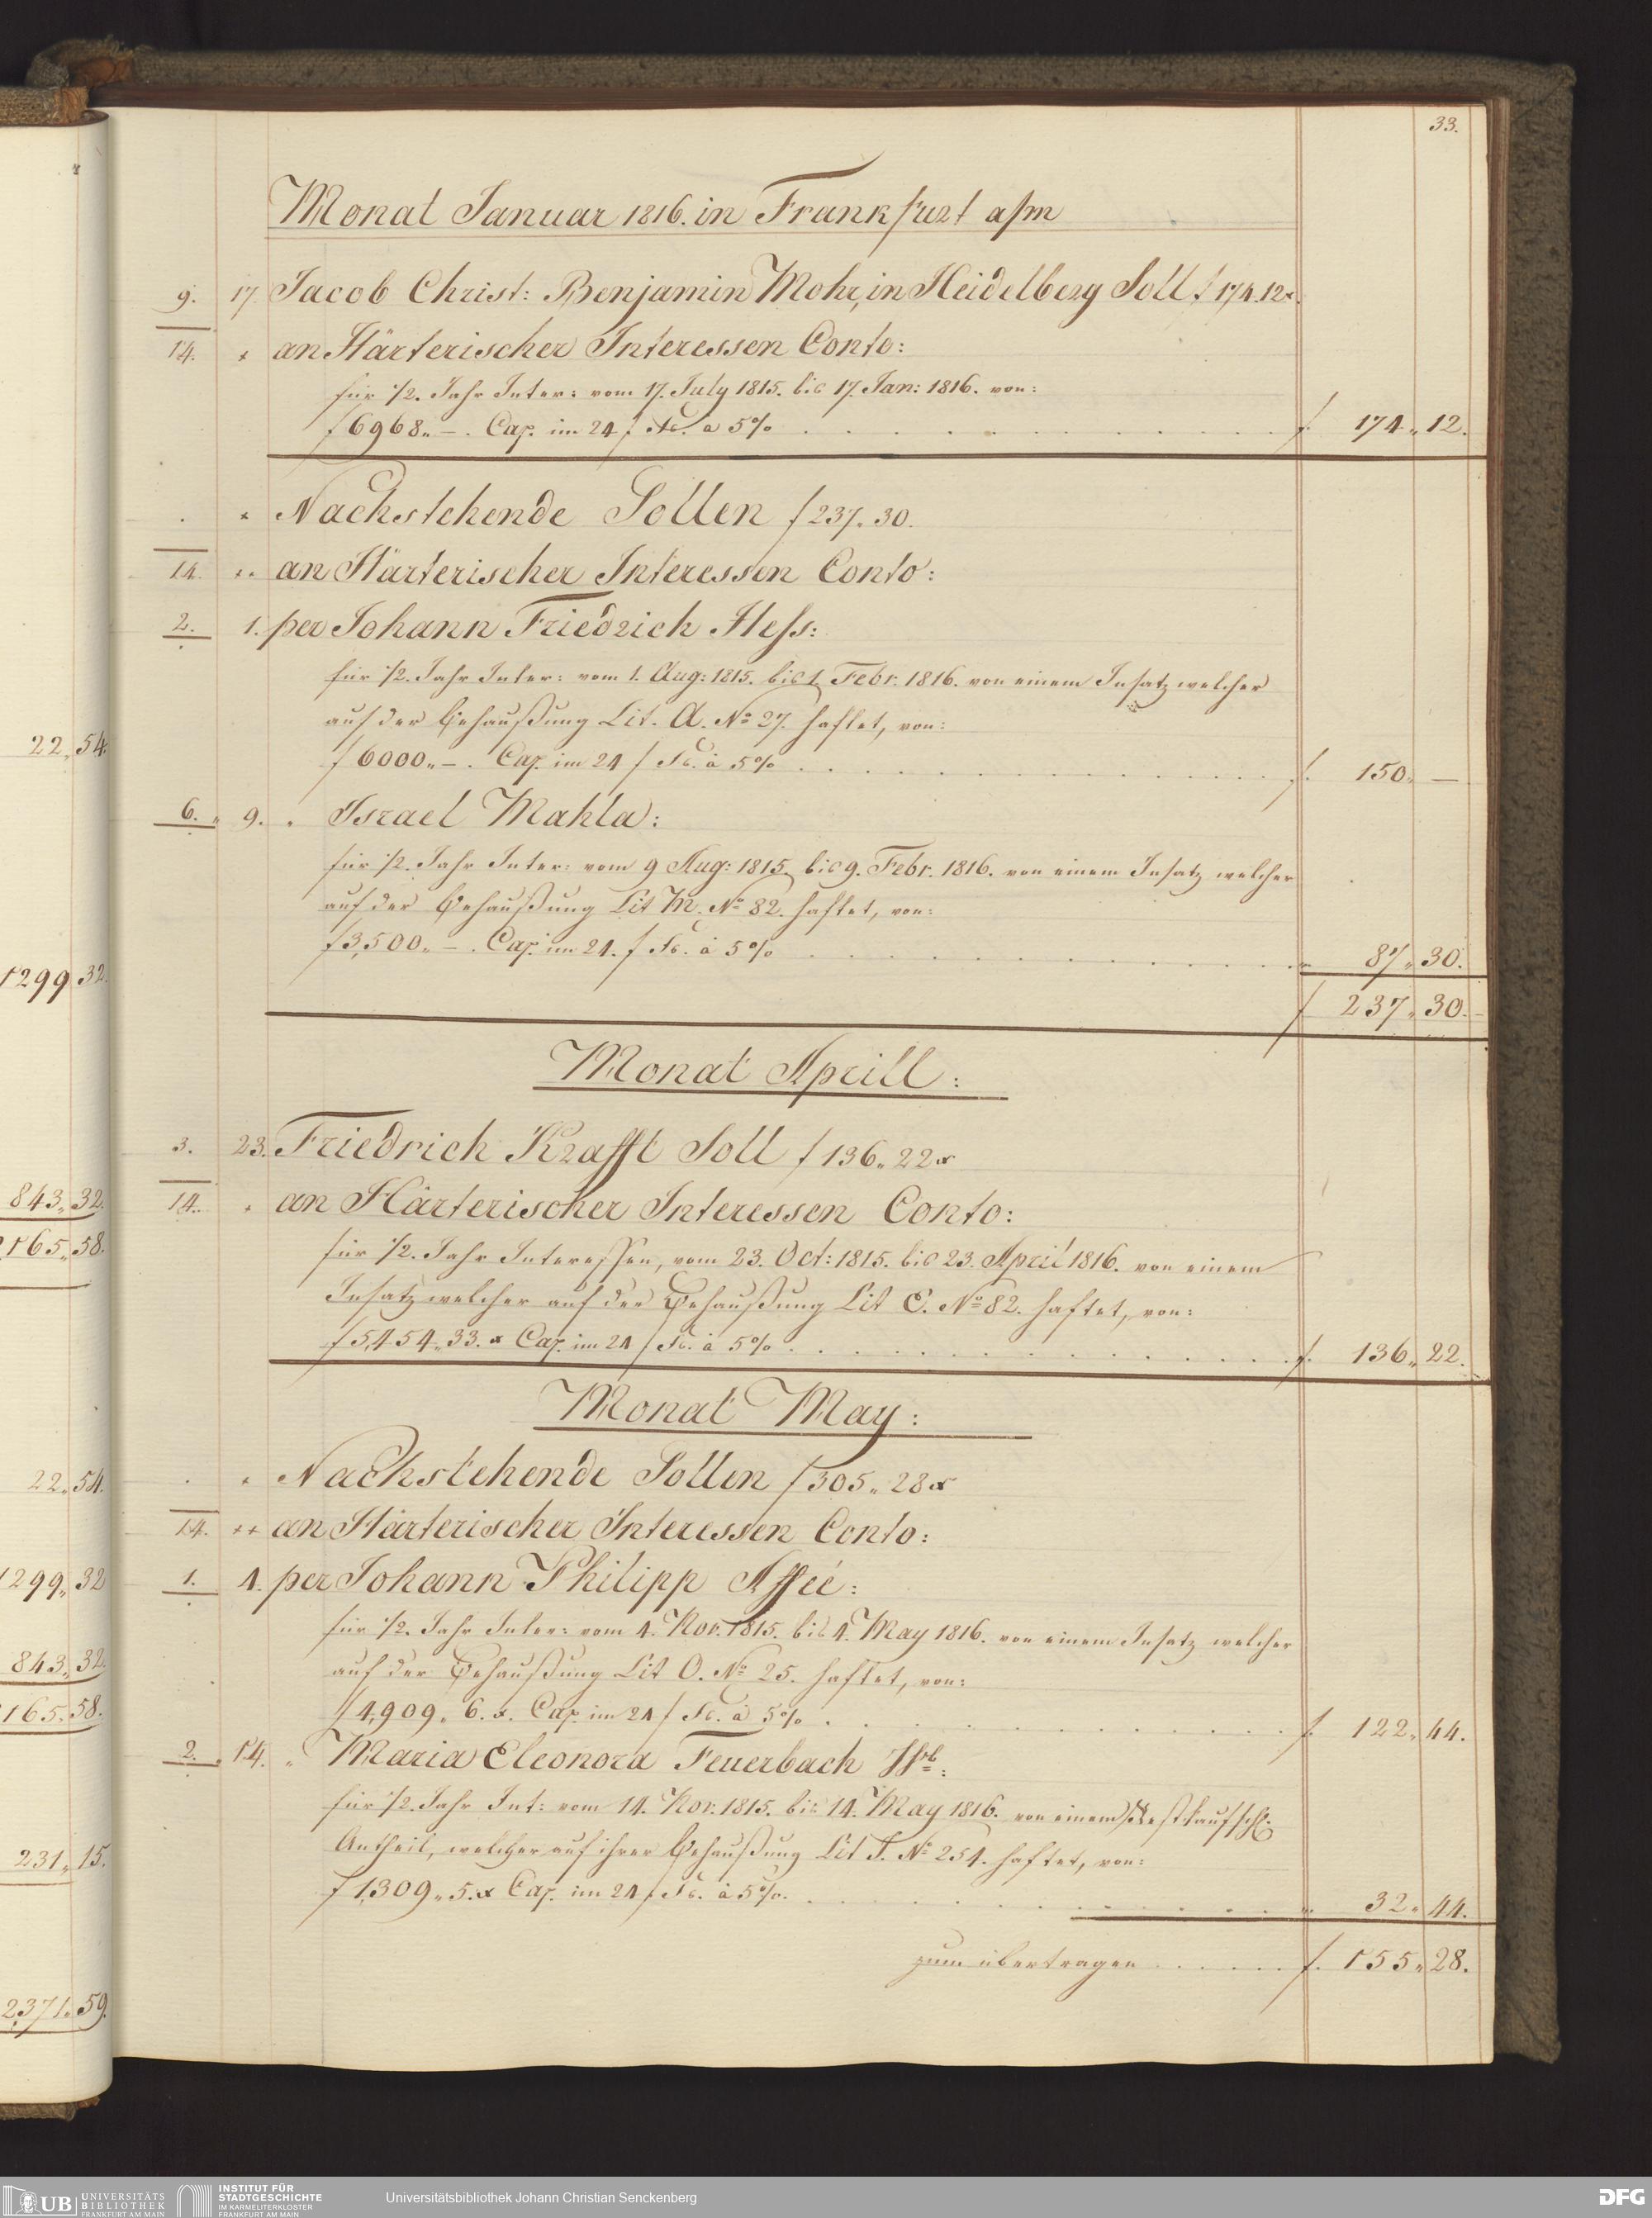 33.
Monat Januar 1816. in Frankfurt a/m
9. 17. Jacob Christ: Benjamin Mohr, in Heidelberg Soll f 174.12x.
14. an Härterischer Interessen Conto:
für 1/2. Jahr Inter: vom 17. July 1815. bis 17. Jan: 1816. von:
f 6968.,–. Cap. im 24 f Fs. a 5% . . . . . f. 174., 12.
Nachstehende Sollen f 237., 30.
14. an Härterischer Interessen Conto:
2. 1. per Johann Friedrich Hess:
für 1/2. Jahr Inter: vom 1. Aug: 1815. bis 1. Febr. 1816. von einem Insatz welcher
auf der Behaußung Lit. A. No 27. haftet, von:
f 6000.,–. Cap. im 24 f Fs. à 5% . . . . . f. 150., —
6. „ 9. „ Israel Mahla:
für 1/2. Jahr Inter: vom 9 Aug: 1815. bis 9. Febr. 1816. von einem Insatz welcher
auf der Behaußung Lit M. No 82. haftet, von:
f 3,500.,–. Cap. im 24. f Fs. à 5% . . . . . „ 87., 30.
f 237., 30.
Monat Aprill:
3. 23. Friedrich Krafft Soll f 136., 22x
14. „ an Härterischer Interessen Conto:
für 1/2. Jahr Interessen, vom 23. Oct: 1815. bis 23. April 1816. von einem
Insatz welcher auf der Behaußung Lit E. No 82. haftet, von:
f 5,454., 33. x Cap. im 24 f Fs. à 5% . . . . . f. 136., 22.
Monat May:
Nachstehende Sollen f 305., 28x
14. an Härterischer Interessen Conto:
1. 4. per Johann Philipp Affée:
für 1/2. Jahr Inter: vom 4. Nov. 1815. bis 4. May 1816. von einem Insatz welcher
auf der Behaußung Lit O. No 25. haftet, von:
f 4,909., 6. x. Cap. im 24 f Fs. à 5% . . . . . f. 122., 44.
2. „ 14. „ Maria Eleonora Feuerbach
für 1/2. Jahr Int: vom 14. Nov. 1815. bis 14. May 1816. von einem Restkaufschl:
Antheil, welcher auf ihrer Behaußung Lit F. No 254. haftet, von:
f 1,309., 5. x Cap. im 24 f Fs. à 5%. . . . . . „ 32., 44.
zum übertragen . . . . . f. 155., 28.
22., 54.
1299 32.
843., 32.
2165., 58.
22., 54.
1299., 32
843., 32.
165., 58.
231., 15.
2,371., 59.
UB UNIVERSITÄTS
BIBLIOTHEK
FRANKFURT AM MAIN
INSTITUT FÜR
STADTGESCHICHTE
IM KARMELITERKLOSTER
FRANKFURT AM MAIN
Universitätsbibliothek Johann Christian Senckenberg
DFG